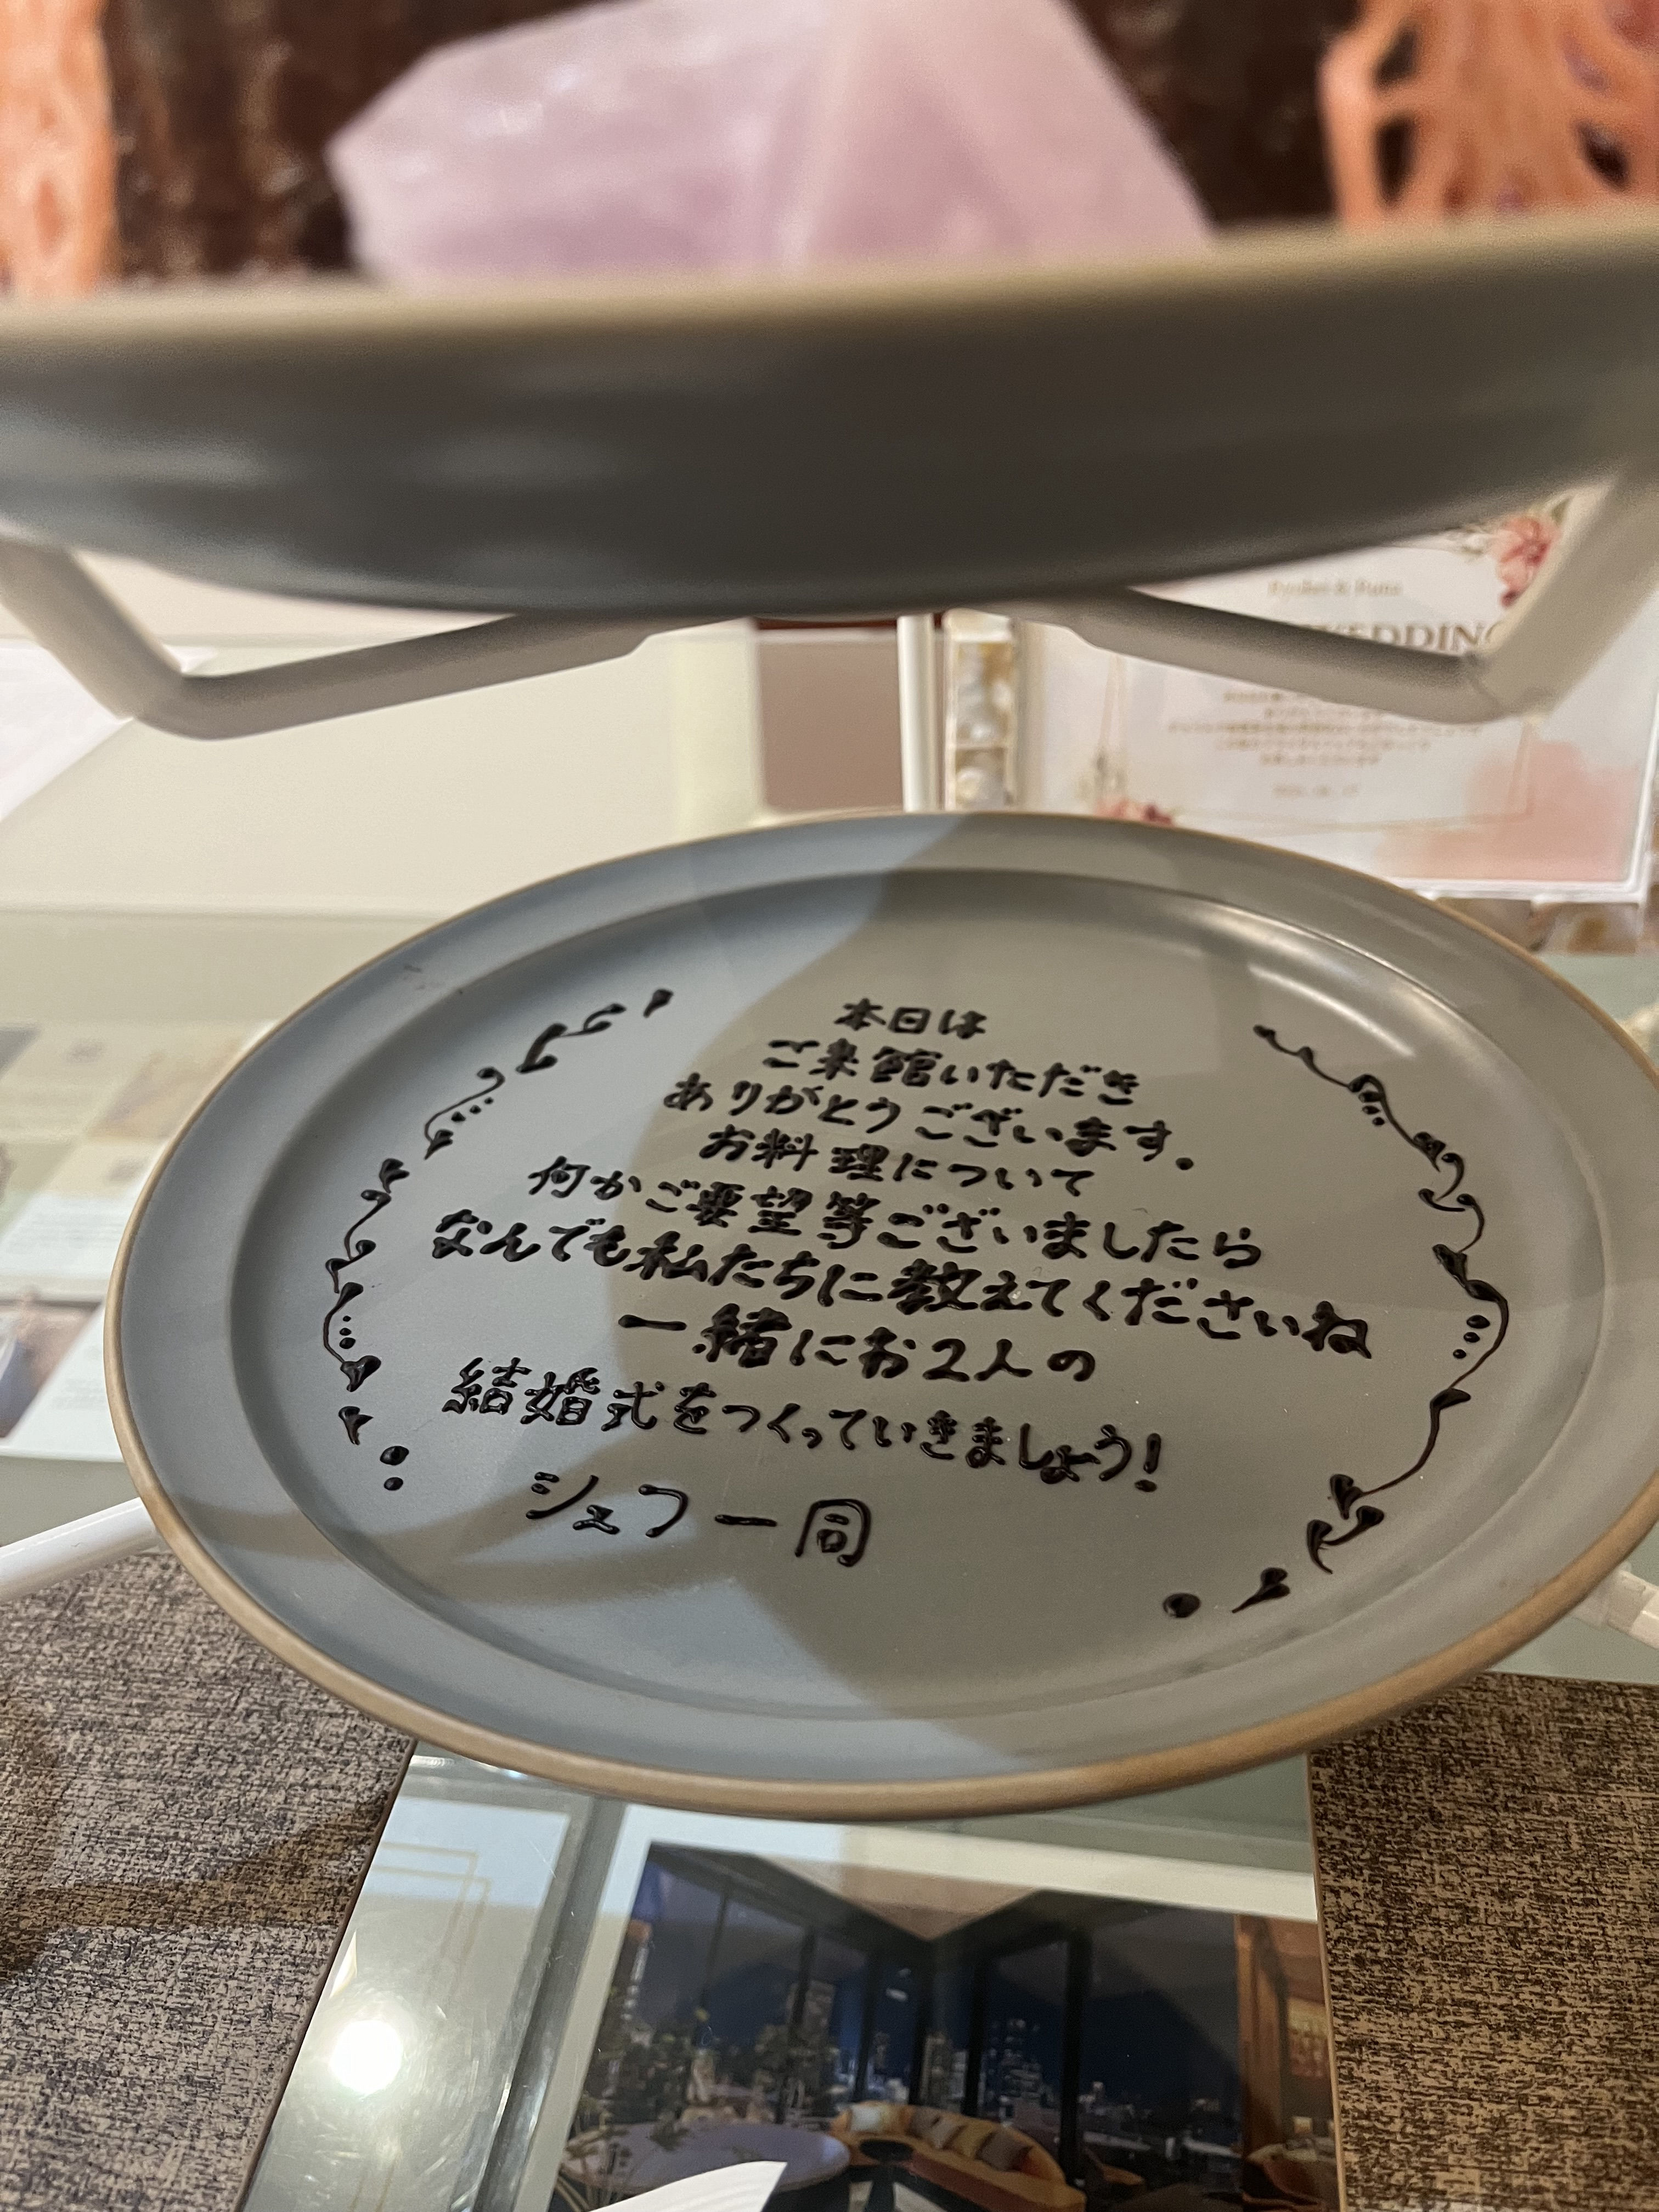 Ryohei & Runa
WEDDING
本日は
ご来館いただき
ありがとうございます。
お料理について
何かご要望等ございましたら
なんでも私たちに教えてくださいね
一緒にお2人の
結婚式をつくっていきましょう!
シェフ一同